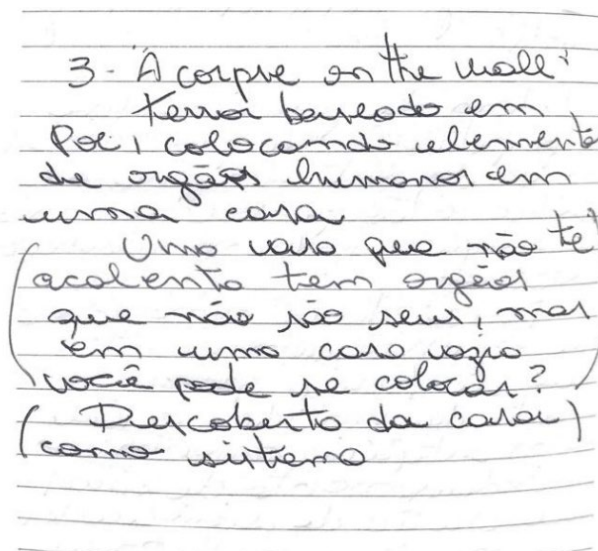 3 - A corpse on the wall:
terror baseado em
Poe, colocando elementos
de orgãos humanos em
uma casa
(Uma casa que não te
acalenta tem orgãos
que não são seus, mas
em uma casa vazia
você pode se colocar?)
(Descoberta da casa)
como sistema